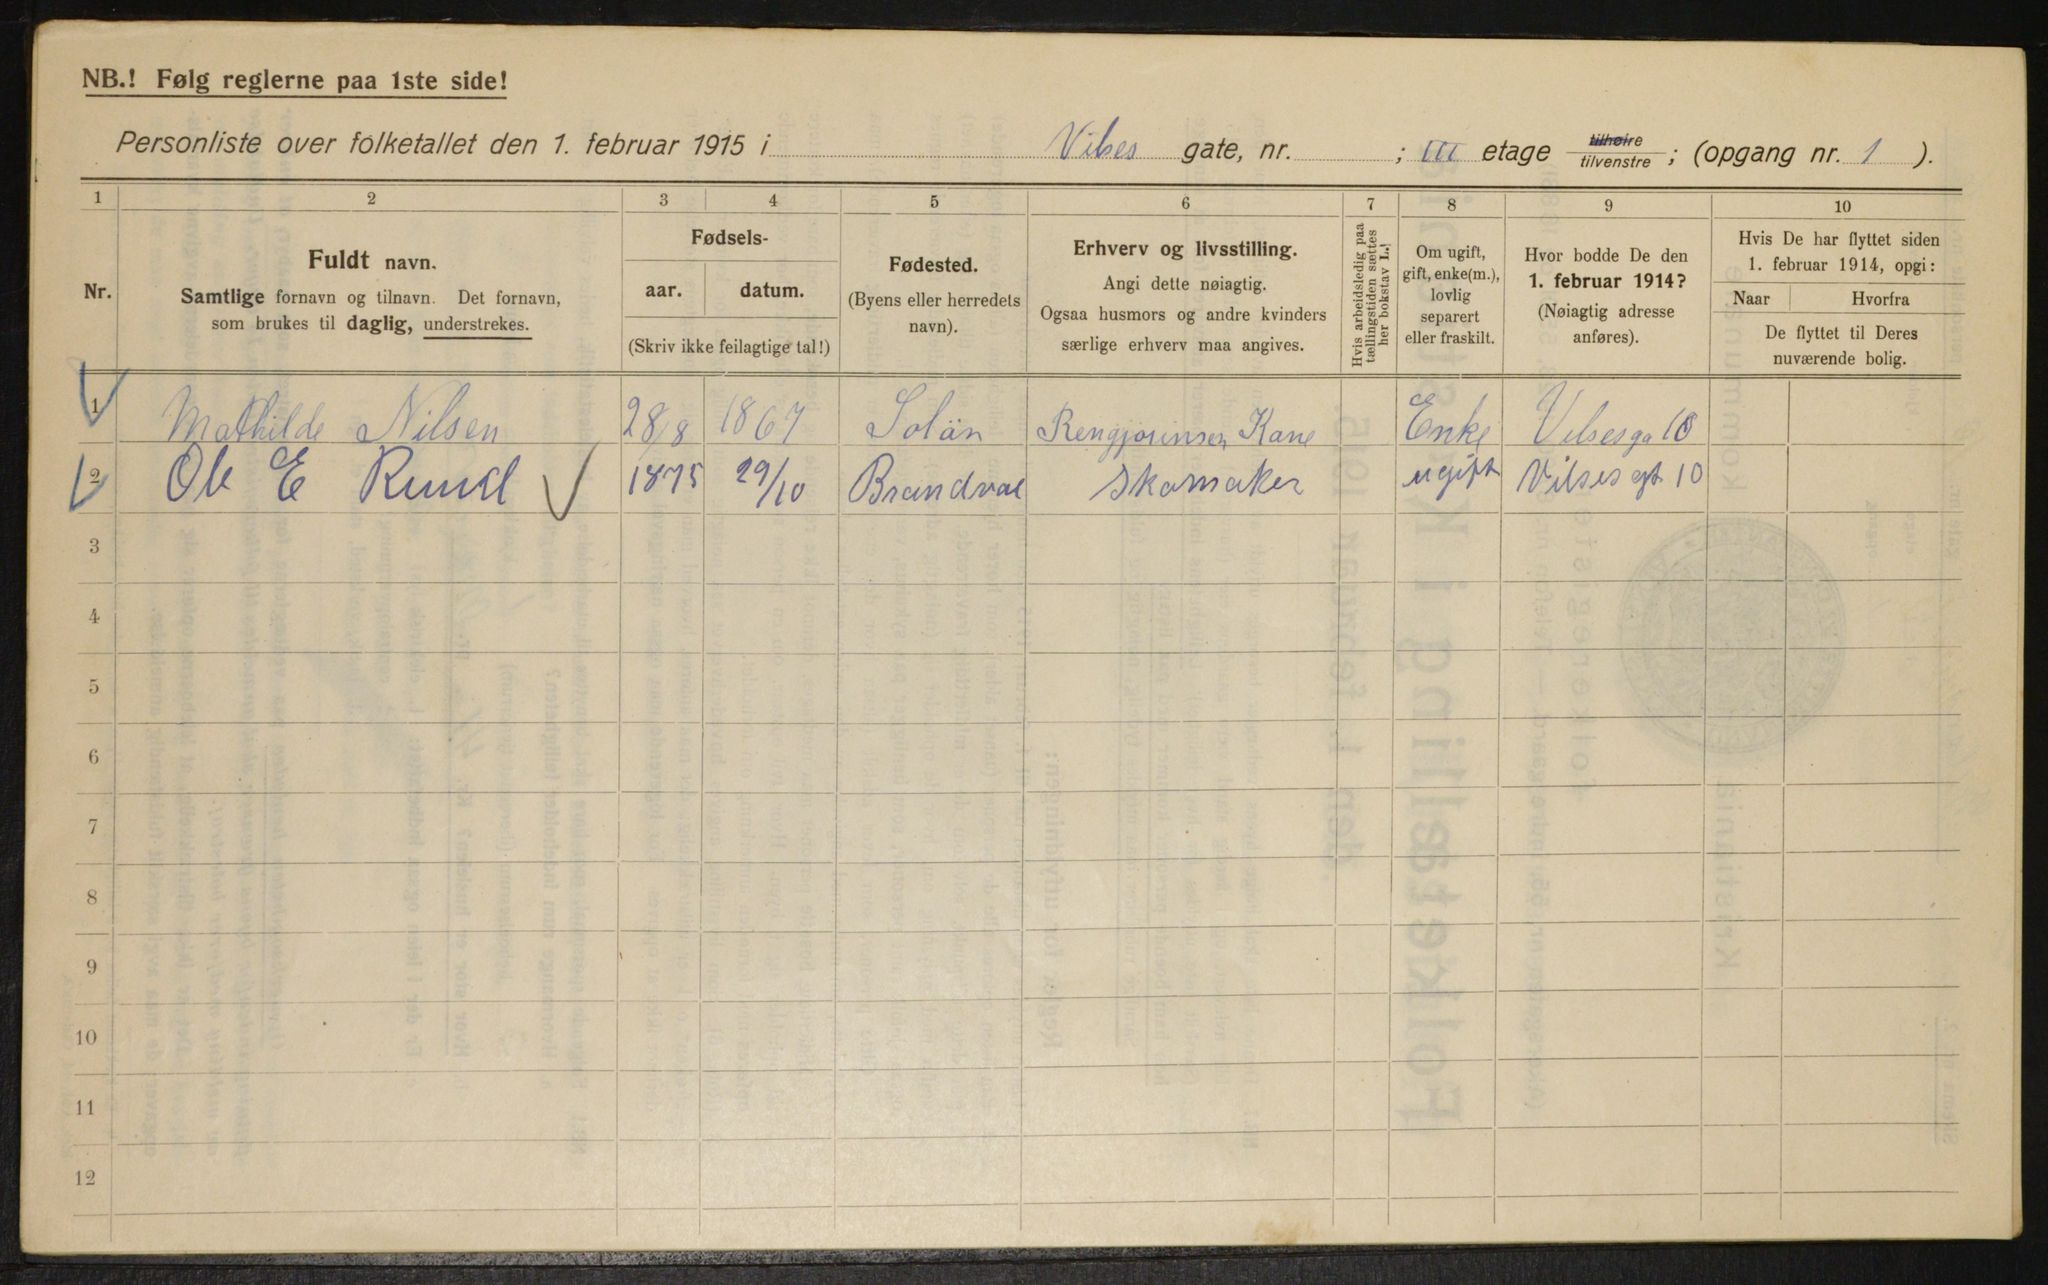 NB.! Følg reglerne paa 1ste side!
Personliste over folketallet den 1. februar 1915 i Vibes gate, nr. ; III etage tilhøire / tilvenstre ; (opgang nr. 1 ).
1 2 3 4 5 6 7 8 9 10
Nr.
Fuldt navn.
Samtlige fornavn og tilnavn. Det fornavn,
som brukes til daglig, understrekes.
Fødsels-
aar. datum.
(Skriv ikke feilagtige tal!)
Fødested.
(Byens eller herredets
navn).
Erhverv og livsstilling.
Angi dette nøiagtig.
Ogsaa husmors og andre kvinders
særlige erhverv maa angives.
Hvis arbeidsledig paa
tællingstiden sættes
her bokstav L.!
Om ugift,
gift, enke(m.),
lovlig
separert
eller fraskilt.
Hvor bodde De den
1. februar 1914?
(Nøiagtig adresse
anføres).
Hvis De har flyttet siden
1. februar 1914, opgi:
Naar Hvorfra
De flyttet til Deres
nuværende bolig.
1 Mathilde Nilsen 28/8 1867 Solör Rengjørinsen Kone Enke Vibsesga 10
2 Ole E Ruud 1875 29/10 Brandval Skomaker ugift Vibes gt 10
3
4
5
6
7
8
9
10
11
12